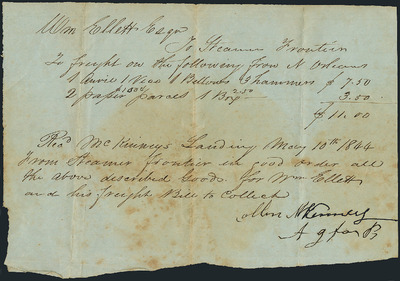 Wm Ellett Esqr
To Steamer Frontier
To freight on the following from N Orleans
1 Anvil 1 Vice 1 Bellows 3 hammers $ 7.50
2 paper parcels 1 Box 3.50
$ 11.00
Recd McKinneys Landing May 10th 1844
From Steamer Frontier in good order all
the above described Goods for Wm Ellett
and his freight Bill to Collect
McKinney